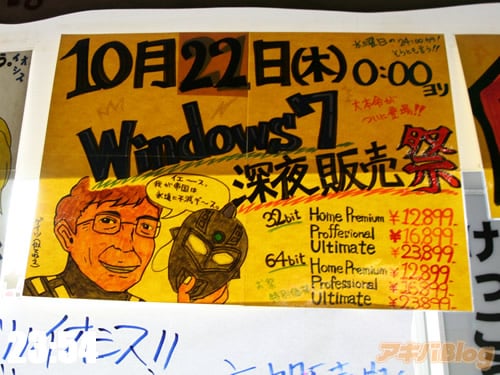 10月22日(木) 0:00ヨリ
水曜日の24:00から!
大本命が
ついに登場!!
Windows 7
深夜販売 祭
イエース。
我が帝国は
永遠に不滅デース。
32bit Home Premium ¥12,899.-
Proffesional ¥16,899.-
Ultimate ¥23,899.-
64bit Home Premium ¥12,899.-
Professional
Ultimate ¥23,899.-
イオシス!!
23:54
アキバBlog